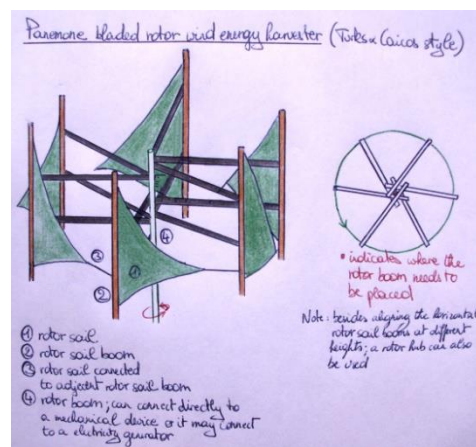 Panemone bladed rotor wind energy harvester (Turks & Caicos style)
④
③
①
②
* indicates where the
rotor boom needs to
be placed
Note: besides aligning the horizontal
rotor sail booms at different
heights; a rotor hub can also
be used
① rotor sail
② rotor sail boom
③ rotor sail connected
to adjacent rotor sail boom
④ rotor boom; can connect directly to
a mechanical device or it may connect
to a electricity generator